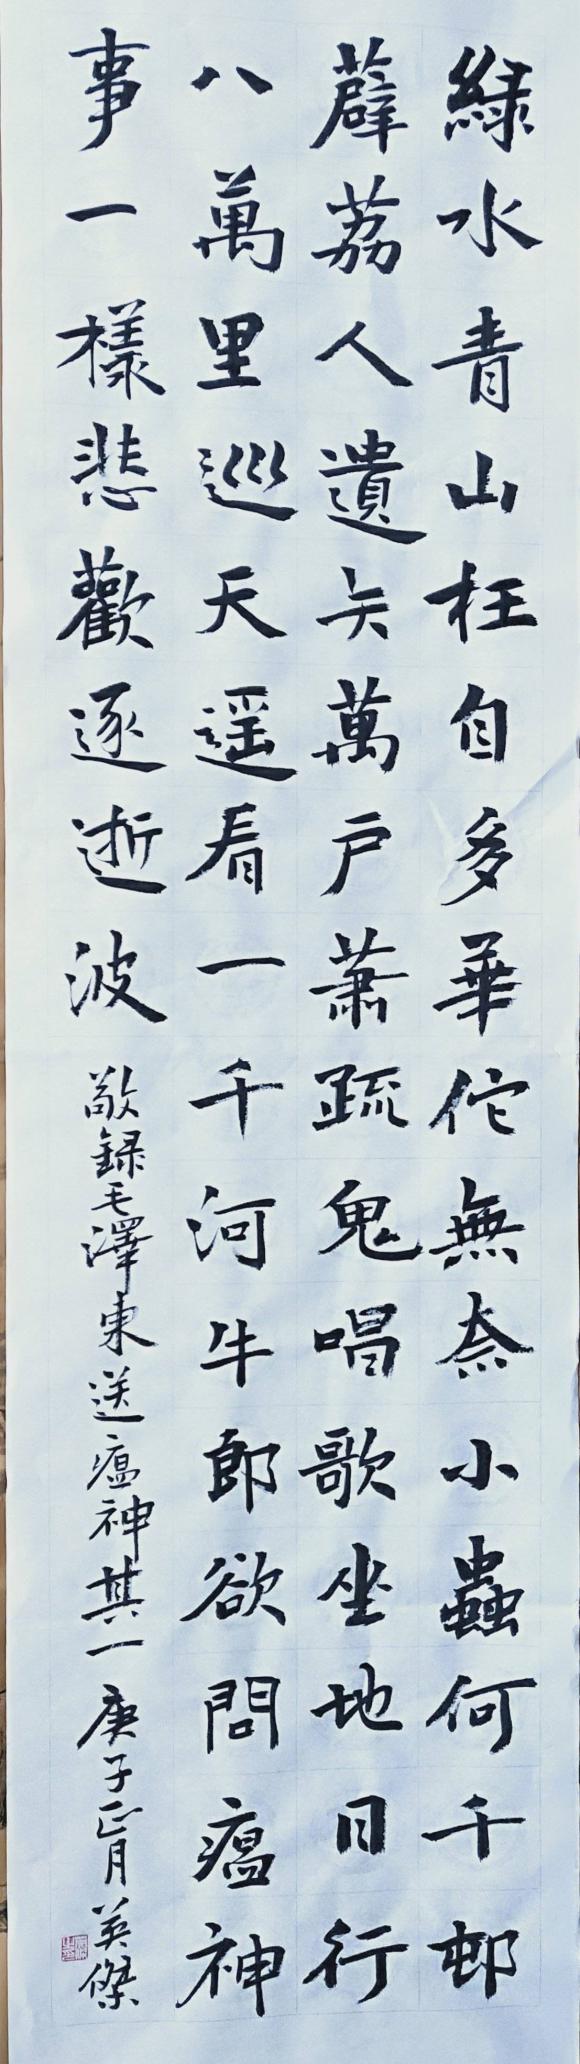 綠水青山枉自多華佗無奈小蟲何千邨
薜荔人遺矢萬戶蕭疏鬼唱歌坐地日行
八萬里巡天遥看一千河牛郎欲問瘟神
事一樣悲歡逐逝波
敬録毛澤東送瘟神其一 庚子正月 英傑